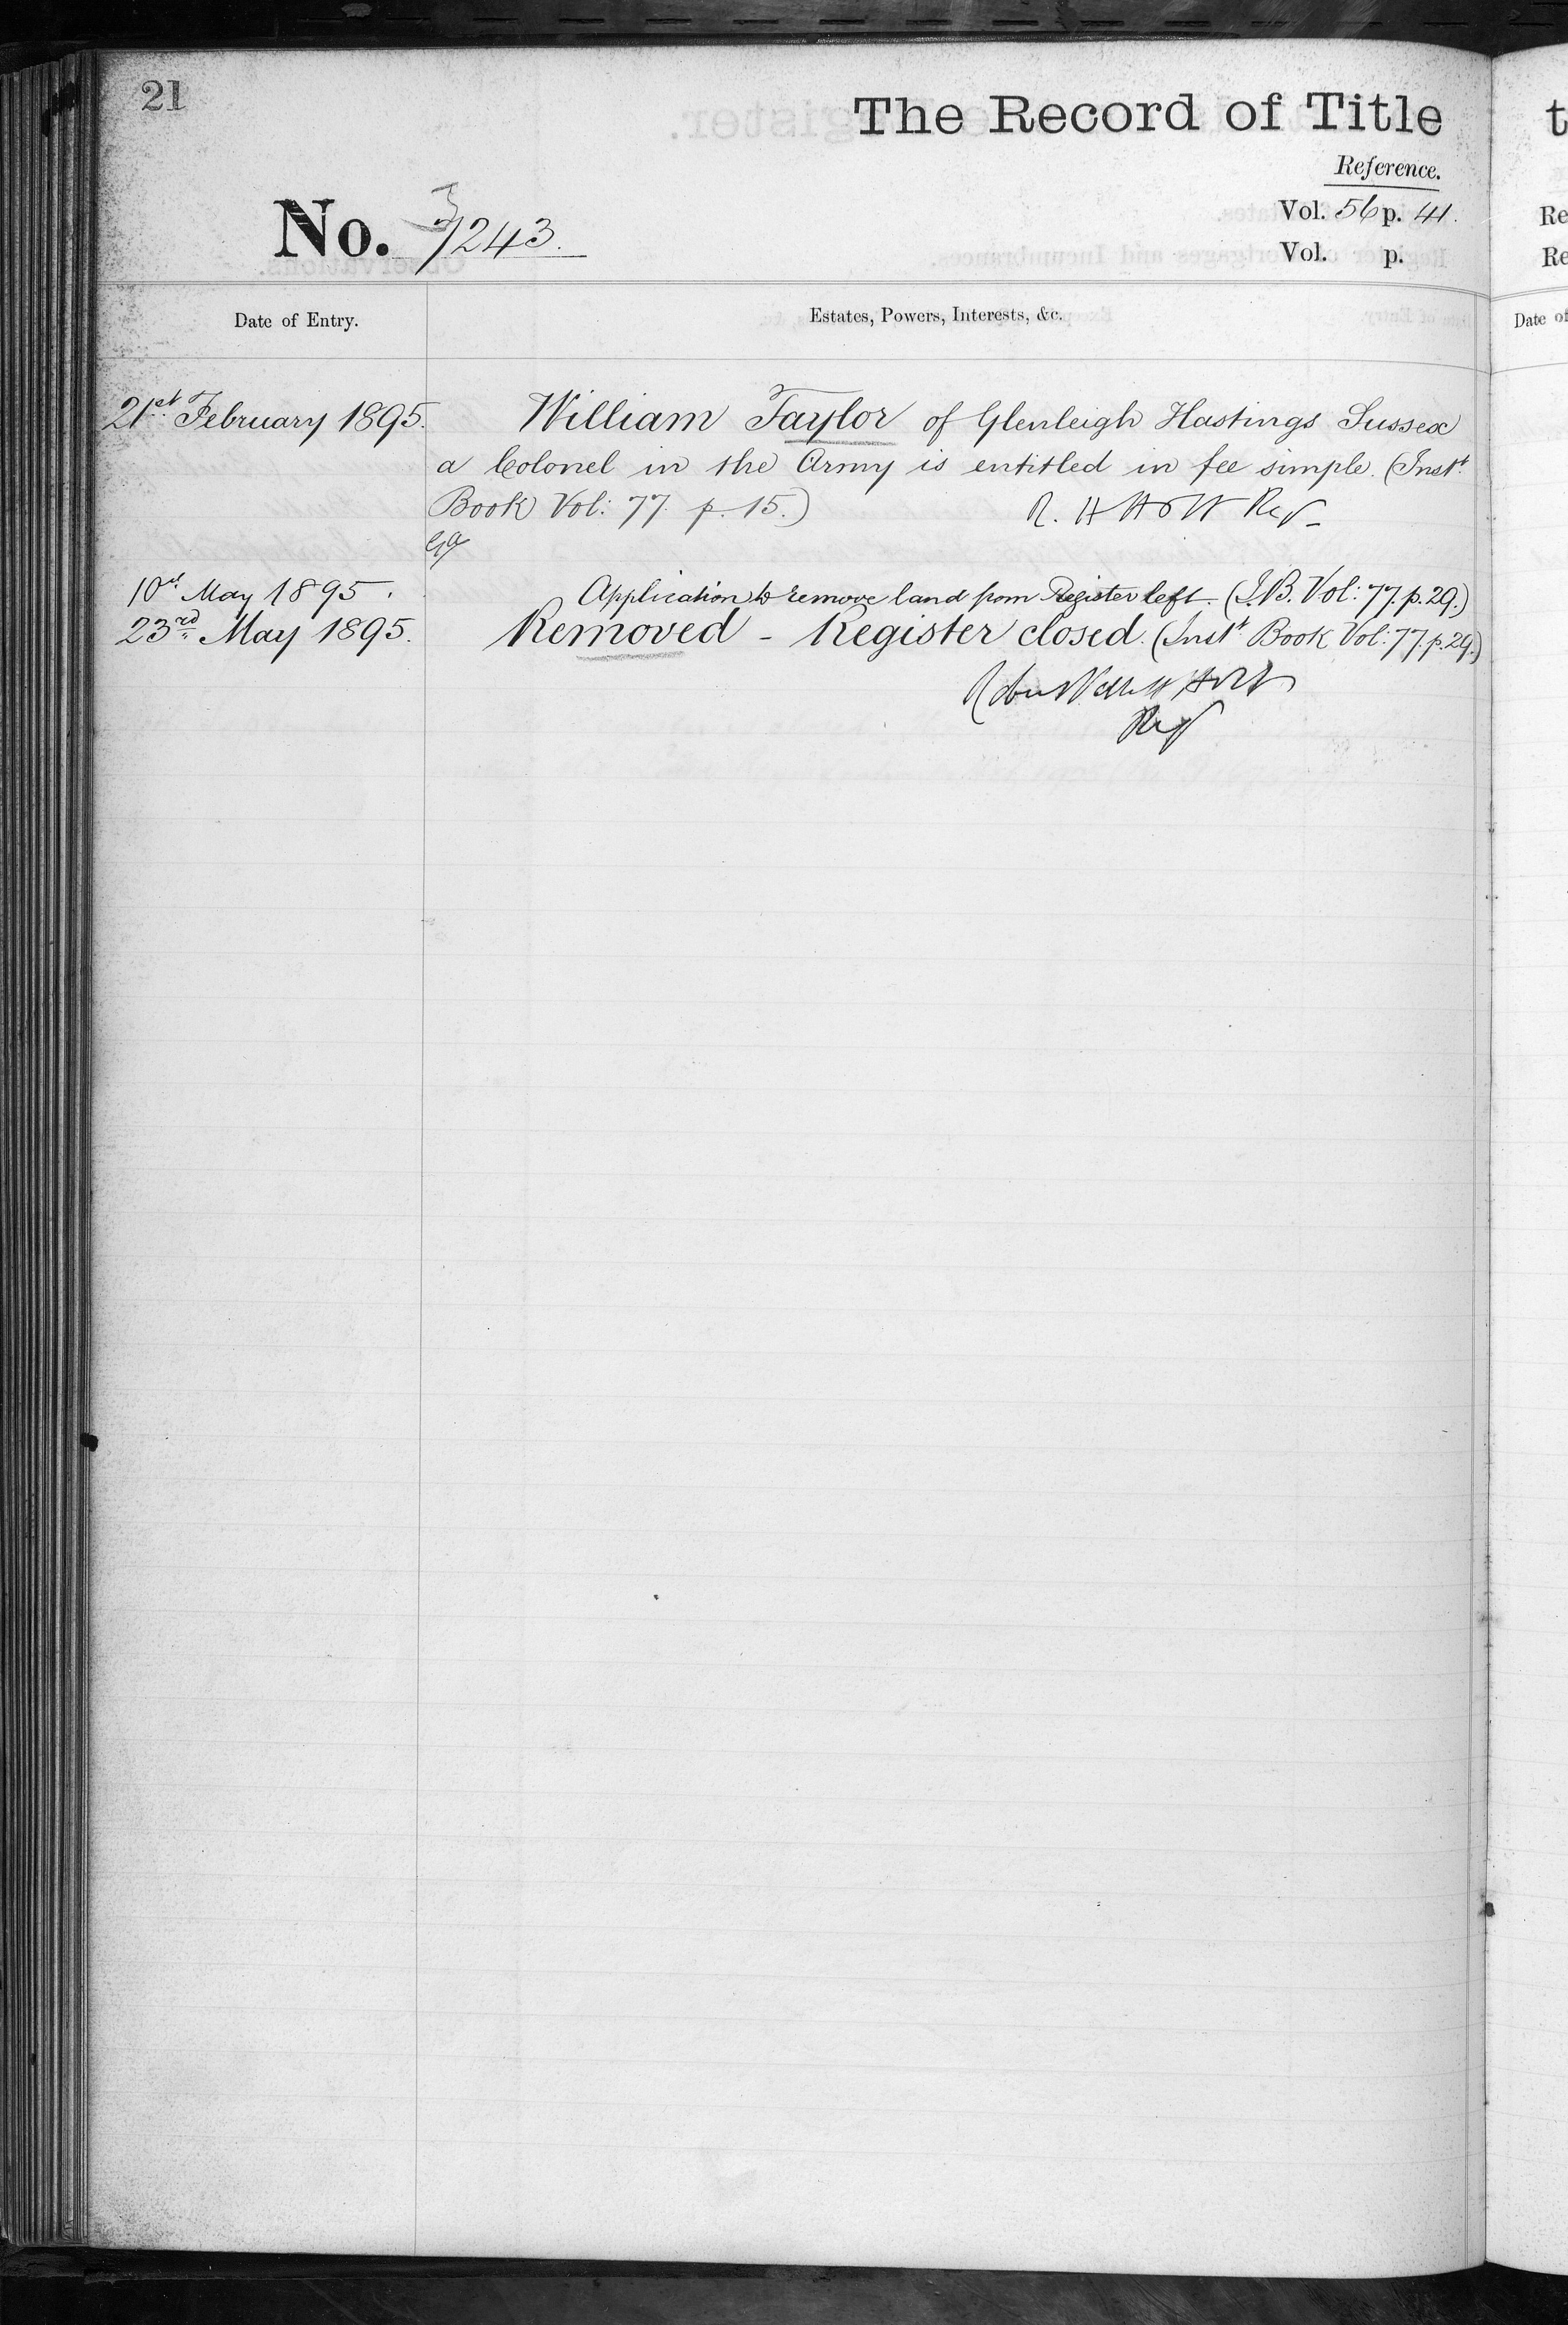 21
The Record of Title
Reference.
Vol. 56 p. 41.
No. 3/243.
Vol. p.
Date of Entry.
Estates, Powers, Interests, &c.
21st February 1895.
William Taylor of Glenleigh Hastings Sussex
a Colonel in the Army is entitled in fee simple. (Instt
Book Vol: 77 p. 15.) R. H Holt Regr
10th May 1895.
Application to remove land from Register left. (I.B. Vol: 77. p. 29.)
23rd May 1895.
Removed - Register closed. (Instt Book Vol: 77. p. 29.)
Robert Hallett Holt
Regr
t
Re
Re
Date of